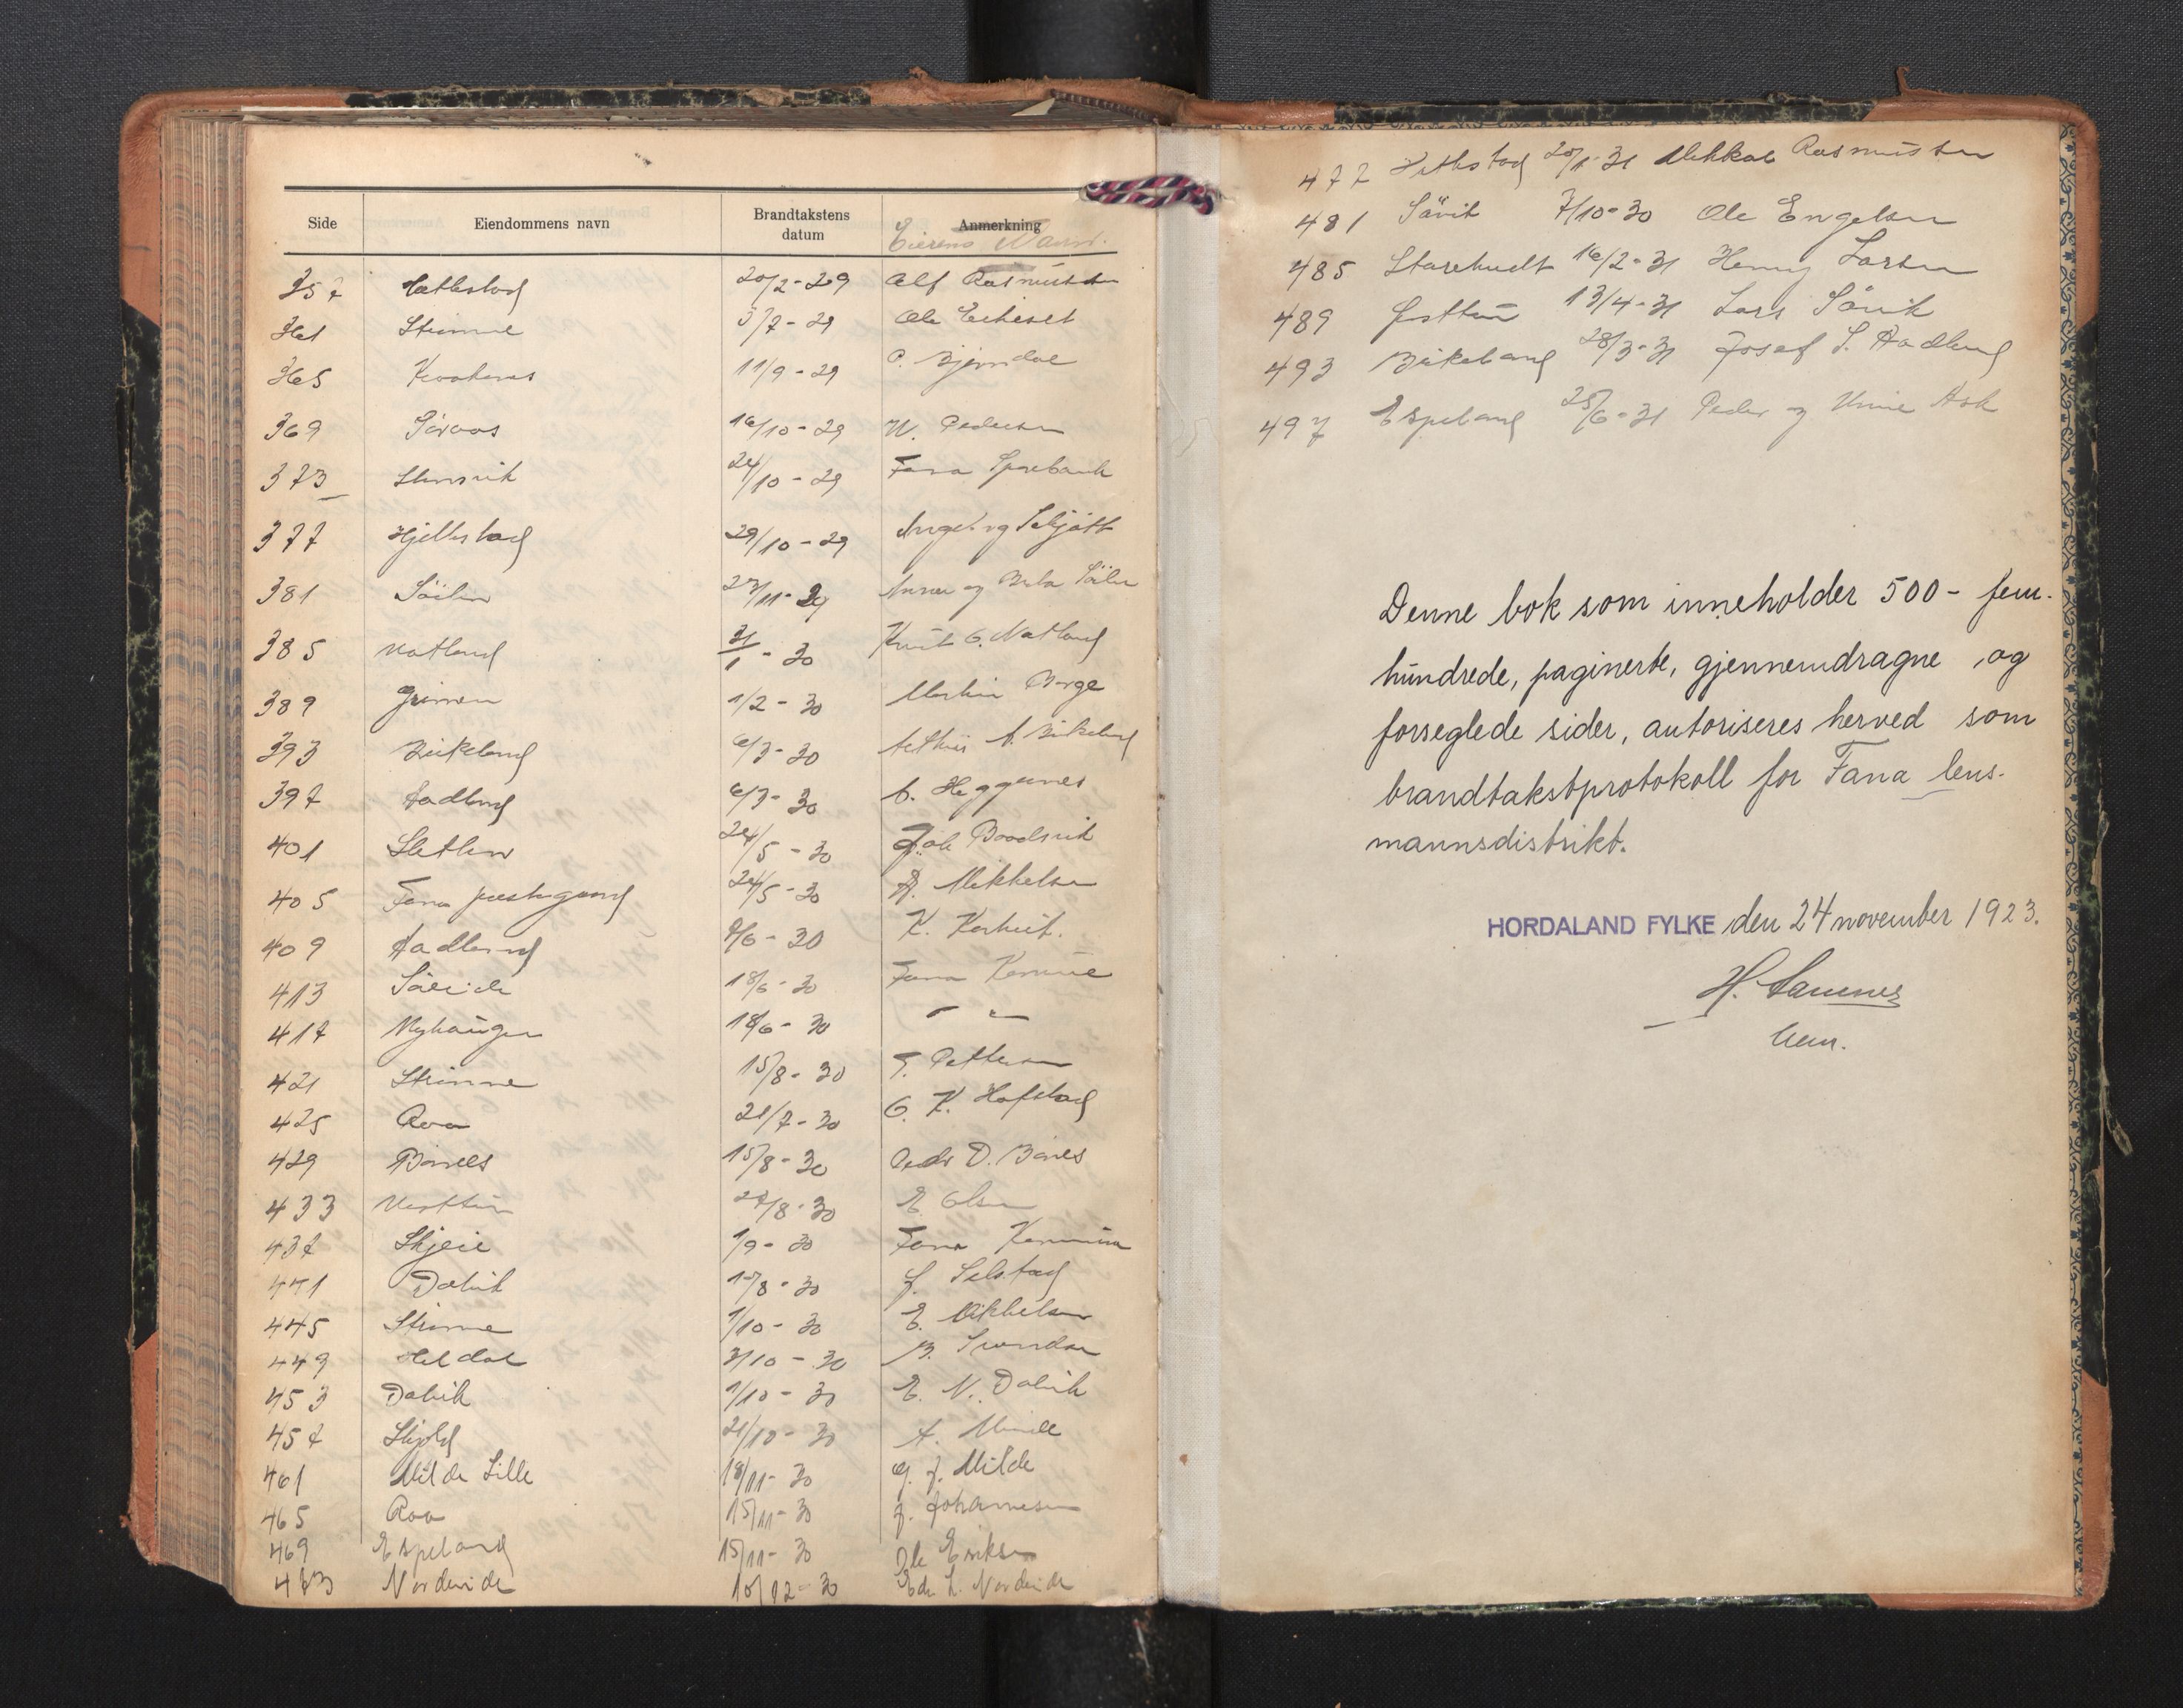 Side Eiendommens navn Brandtakstens datum Anmerkning
Eierens Navn.
357 Hatlestad 20/2-29 Alf Rasmussen
361 Stimme 3/7-29 Ole
365 11/9-29 O. Bjørndal
369 Söraas 16/10-29 W. Pedersen
373 Stensvik 24/10-29 Fana Sparebank
377 Hjellestad 29/10-29 Ingeborg Schjött
381 Söilen 27/11-29 og Söilen
385 Natland 31/1-30 Knut O. Natland
389 Grimen 1/2-30 Martin Berge
393 Birkeland 6/3-30 A. Birkeland
397 Aadland 6/3-30 Heggernes
401 Sletten 24/5-30
405 Fana prestegaard 24/5-30 Mikkelsen
409 Aadland 9/6-30 K.
413 Söreide 18/6-30 Fana Komune
417 Myhaugen 18/6-30 - " -
421 Stimme 15/8-30 T. Pettersen
425 Raa 21/7-30 O. K. Hofstad
429 Bönes 15/8-30 Peder D. Bönes
433 Nesttun 27/8-30 E. Olsen
437 Skjeie 1/9-30 Fana Kommune
441 Dolvik 15/8-30 J. Selstad
445 Stimme 1/10-30 E. Mikkelsen
449 Heldal 3/10-30 B. Svendsen
453 Dolvik 1/10-30 E. N. Dolvik
457 Skjold 21/10-30 A. Minde
461 Milde Lille 18/11-30 J. Milde
465 Raa 15/11-30 J. Johannesen
469 Espeland 15/11-30 Ole Eriksen
473 Nordeide 10/12-30 L. Nordeide
477 Hatlestad 20/1-31 Mikkal Rasmussen
481 Sävik 7/10-30 Ole Engelsen
485 16/2-31 Henry Larsen
489 Nesttun 13/4-31 Lars Sävik
493 Birkeland 28/3-31 Josef S. Aadland
497 Espeland 25/6-31 Peder og Ask
Denne bok som inneholder 500 - fem-
hundrede, paginerte, gjennemdragne, og
forseglede sider, autoriseres herved som
brandtakstprotokoll for Fana lens-
mannsdistrikt.
HORDALAND FYLKE den 24 november 1923.